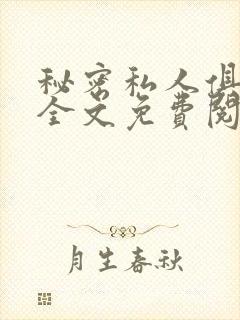 秘密私人俱
全文免費閱
月生春秋